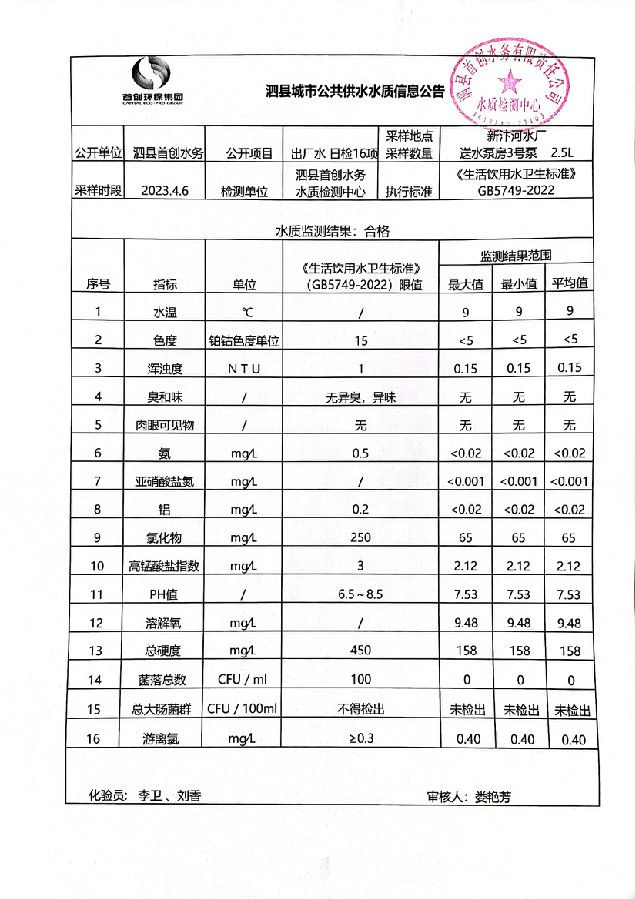 首创环保集团
泗县城市公共供水水质信息公告
泗县首创水务有限责任公司
水质检测中心
公开单位 泗县首创水务 公开项目 出厂水 日检16项 采样地点 采样数量 新汴河水厂 送水泵房3号泵 2.5L
采样时段 2023.4.6 检测单位 泗县首创水务 水质检测中心 执行标准 《生活饮用水卫生标准》 GB5749-2022
水质监测结果：合格
序号 指标 单位 《生活饮用水卫生标准》（GB5749-2022）限值 监测结果范围
最大值 最小值 平均值
1 水温 ℃ / 9 9 9
2 色度 铂钴色度单位 15 <5 <5 <5
3 浑浊度 N T U 1 0.15 0.15 0.15
4 臭和味 / 无异臭，异味 无 无 无
5 肉眼可见物 / 无 无 无 无
6 氨 mg/L 0.5 <0.02 <0.02 <0.02
7 亚硝酸盐氮 mg/L / <0.001 <0.001 <0.001
8 铝 mg/L 0.2 <0.02 <0.02 <0.02
9 氯化物 mg/L 250 65 65 65
10 高锰酸盐指数 mg/L 3 2.12 2.12 2.12
11 PH值 / 6.5～8.5 7.53 7.53 7.53
12 溶解氧 mg/L / 9.48 9.48 9.48
13 总硬度 mg/L 450 158 158 158
14 菌落总数 CFU / ml 100 0 0 0
15 总大肠菌群 CFU / 100ml 不得检出 未检出 未检出 未检出
16 游离氯 mg/L ≥0.3 0.40 0.40 0.40
化验员：李卫、刘香 审核人：娄艳芳